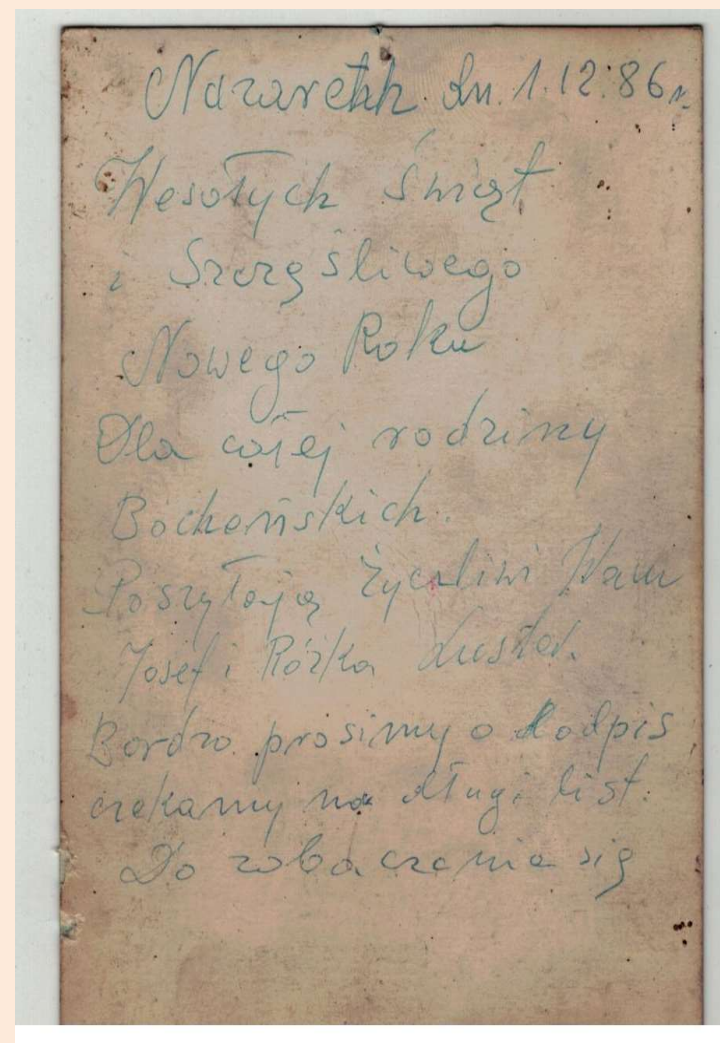 Nazareth dn. 1.12.86r.
Wesołych Świąt
i Szczęśliwego
Nowego Roku
Dla całej rodziny
Bocheńskich.
Poszyłają życzliwi Wam
Josef i Róźka
Bardzo prosimy o odpis
czekamy na długi list.
Do zobaczenia się